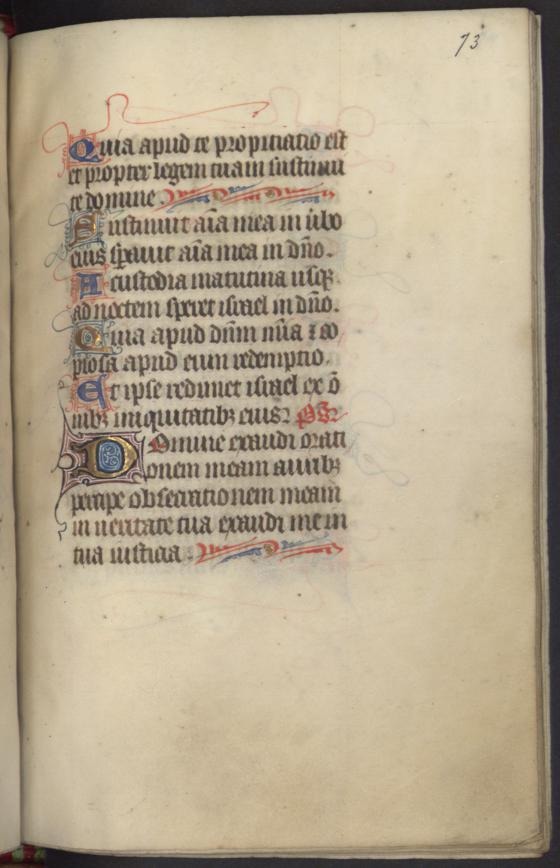 73
Quia apud te propiciatio est
et propter legem tuam sustinui
te domine
Sustinuit aīa mea in ūbo
eius spauit aīa mea in dn̄o.
A custodia matutina usq̄
ad noctem speret israel in dn̄o.
Quia apud dn̄m mīa ⁊ co
piosa apud eum redemptio.
Et ipse redimet israel ex ō
nibꝫ iniquitatibꝫ eius
Domine exaudi orati
onem meam auribꝫ
percipe obsecrationem meam
in ueritate tua exaudi me in
tua iusticia.